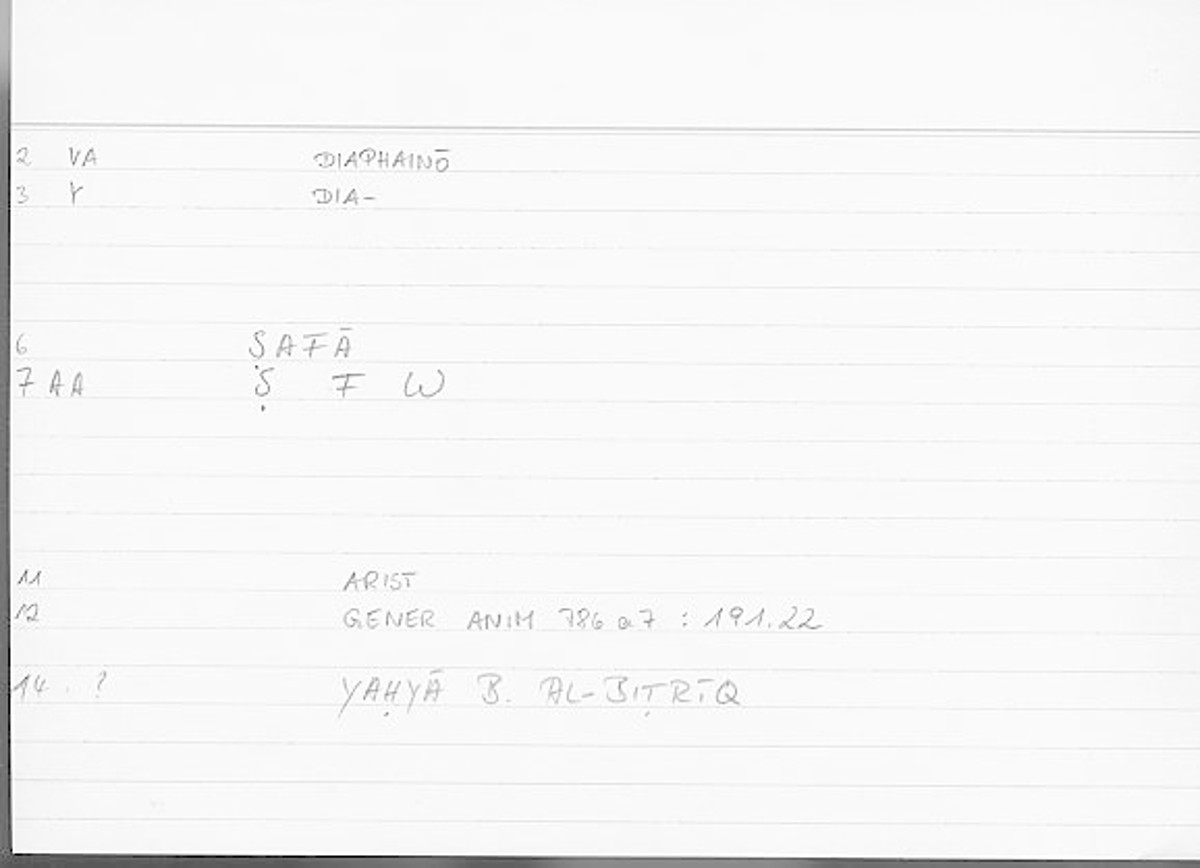 2 VA DIAPHAINŌ
3 Y DIA-
6 ṢAFĀ
7 AA Ṣ F W
11 ARIST
12 GENER ANIM 786 a7 : 191.22
14 . ? YAḤYĀ B. AL-BIṬRĪQ